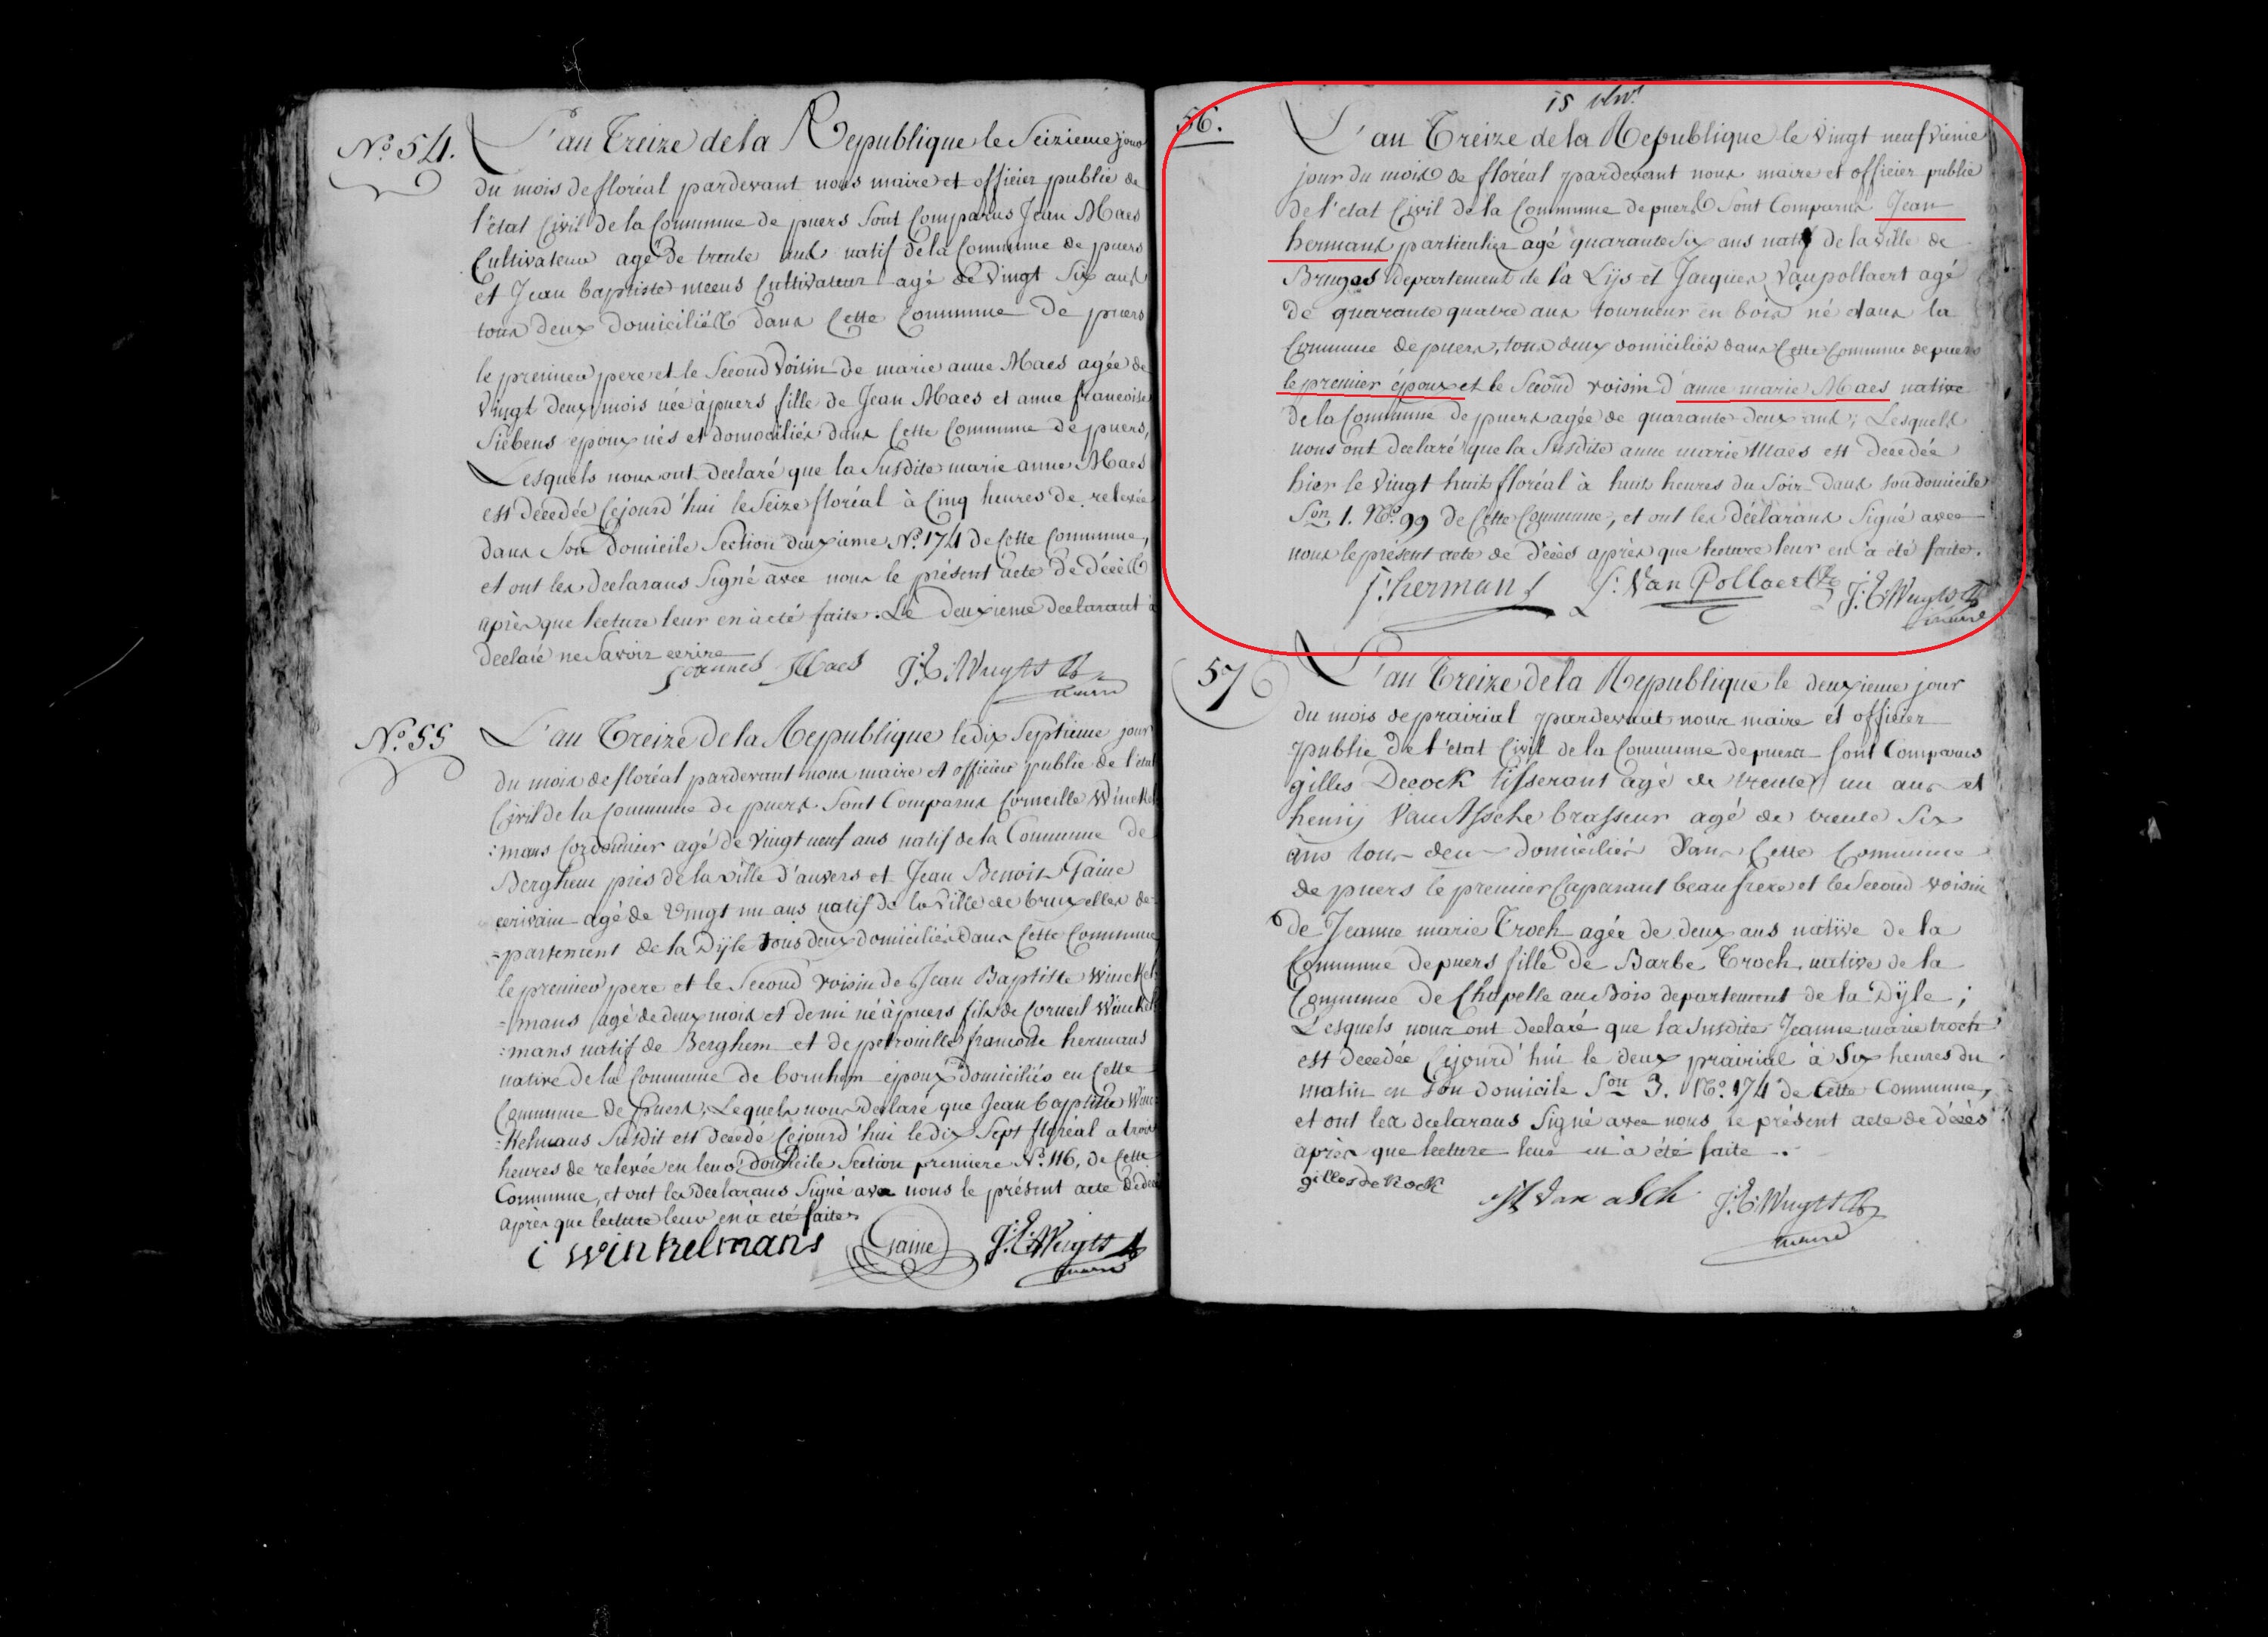 No. 54.
L'an Treize de la Republique le Seizieme jour
du mois de floréal pardevant nous maire et officier public de
l'état Civil de la Commune de puers Sont Comparus Jean Maes
Cultivateur agé de trente ans natif de la Commune de puers
et Jean baptiste meeus Cultivateur agé de Vingt Six ans
tous deux domiciliés dans Cette Commune De puers
le premier pere et le Second Voisin de marie anne Maes agée de
Vingt deux mois née à puers fille de Jean Maes et anne francoise
Siebens epoux nés et domociliés dans Cette Commune De puers,
Lesquels nous ont declaré que la Susdite marie anne Maes
est décedée Cejourd'hui le Seize floréal à Cinq heures de relevée
dans Son domicile Section deuxieme No. 174 de Cette Commune,
et ont les declarans Signé avec nous le présent acte De décès
après que lecture leur en a été faite. Le deuxieme declarant a
declaré ne Savoir ecrire
Joannes Maes J: E: Wuyts
maire
No. 55
L'an Treize De la Republique le dix Septieme jour
du mois de floréal pardevant nous maire et officier public de l'etat
Civil de la Commune de puers Sont Comparus Corneille Winckel
:mans Cordonnier agé de Vingt neuf ans natif de la Commune De
Berghem près de la Ville d'anvers et Jean Benoit Gaine
ecrivain agé de Vingt un ans natif de la Ville de bruxelles de-
=partement de la Dÿle tous deux domiciliés Dans Cette Commune
le premier pere et le Second voisin de Jean Baptiste Winckel
=mans agé de deux mois et demi né à puers fils de Corneil Winckel
:mans natif de Berghem et de petronille francoise hermans
native de la Commune de bornhem epoux domiciliés en Cette
Commune De puers; Lequels nous Declaré que Jean baptiste Winc
:Kelmans Susdit est decedé Cejourd'hui le dix Sept floréal a trois
heures de relevée en leur domicile Section premiere No. 116, de Cette
Commune, et ont les Declarans Signé avec nous le présent acte De deces
après que lecture leur en a été faite
C Winkelmans Gaine J: E: Wuyts
maire
56.
L'an Treize de la Republique le Vingt neufvieme
jour du mois de floréal pardevant nous maire et officier public
de l'etat Civil de la Commune de puers Sont Comparus Jean
hermans particulier agé quarante Six ans natif de la Ville de
Bruges departement de la Lÿs et Jacques Vanpollaert agé
de quarante quatre ans tourneur en bois né dans la
Commune de puers, tous deux domiciliés dans Cette Commune de puers
le premier époux et le Second voisin d'anne marie Maes native
de la Commune de puers agée de quarante deux ans; Lesquels
nous ont declaré que la Susdite anne marie Maes est decedée
hier le Vingt huit floréal à huit heures du Soir dans son domicile
Son. 1. No. 99 de Cette Commune, et ont les déclarans Signé avec
nous le présent acte de décès après que lecture leur en a été faite.
J: hermans J: Van Pollaert J: E: Wuyts
maire
57
L'an Treize de la Republique le deuxieme jour
du mois de prairial pardevant nous maire et officier
public De l'état Civil de la Commune de puers Sont Comparus
gilles Decock tisserant agé de trente un ans et
henrij Van Assche brasseur agé de trente Six
ans tous deux domiciliés Dans Cette Commune
de puers le premier Caparant beau frere et le Second voisin
De Jeanne marie Troch agée de deux ans native de la
Commune de puers fille de Barbe Troch native de la
Commune De Chapelle au Bois departement de la Dÿle;
Lesquels nous ont declaré que la Susdite Jeanne marie troch
est decedée Cejourd'hui le deux prairial à Six heures du
matin en Son domicile Son 3. No. 174 de Cette Commune,
et ont les declarans Signé avec nous le présent acte de décès
après que lecture leur en a été faite.
gilles de Kock H Van asch J: E: Wuyts
maire